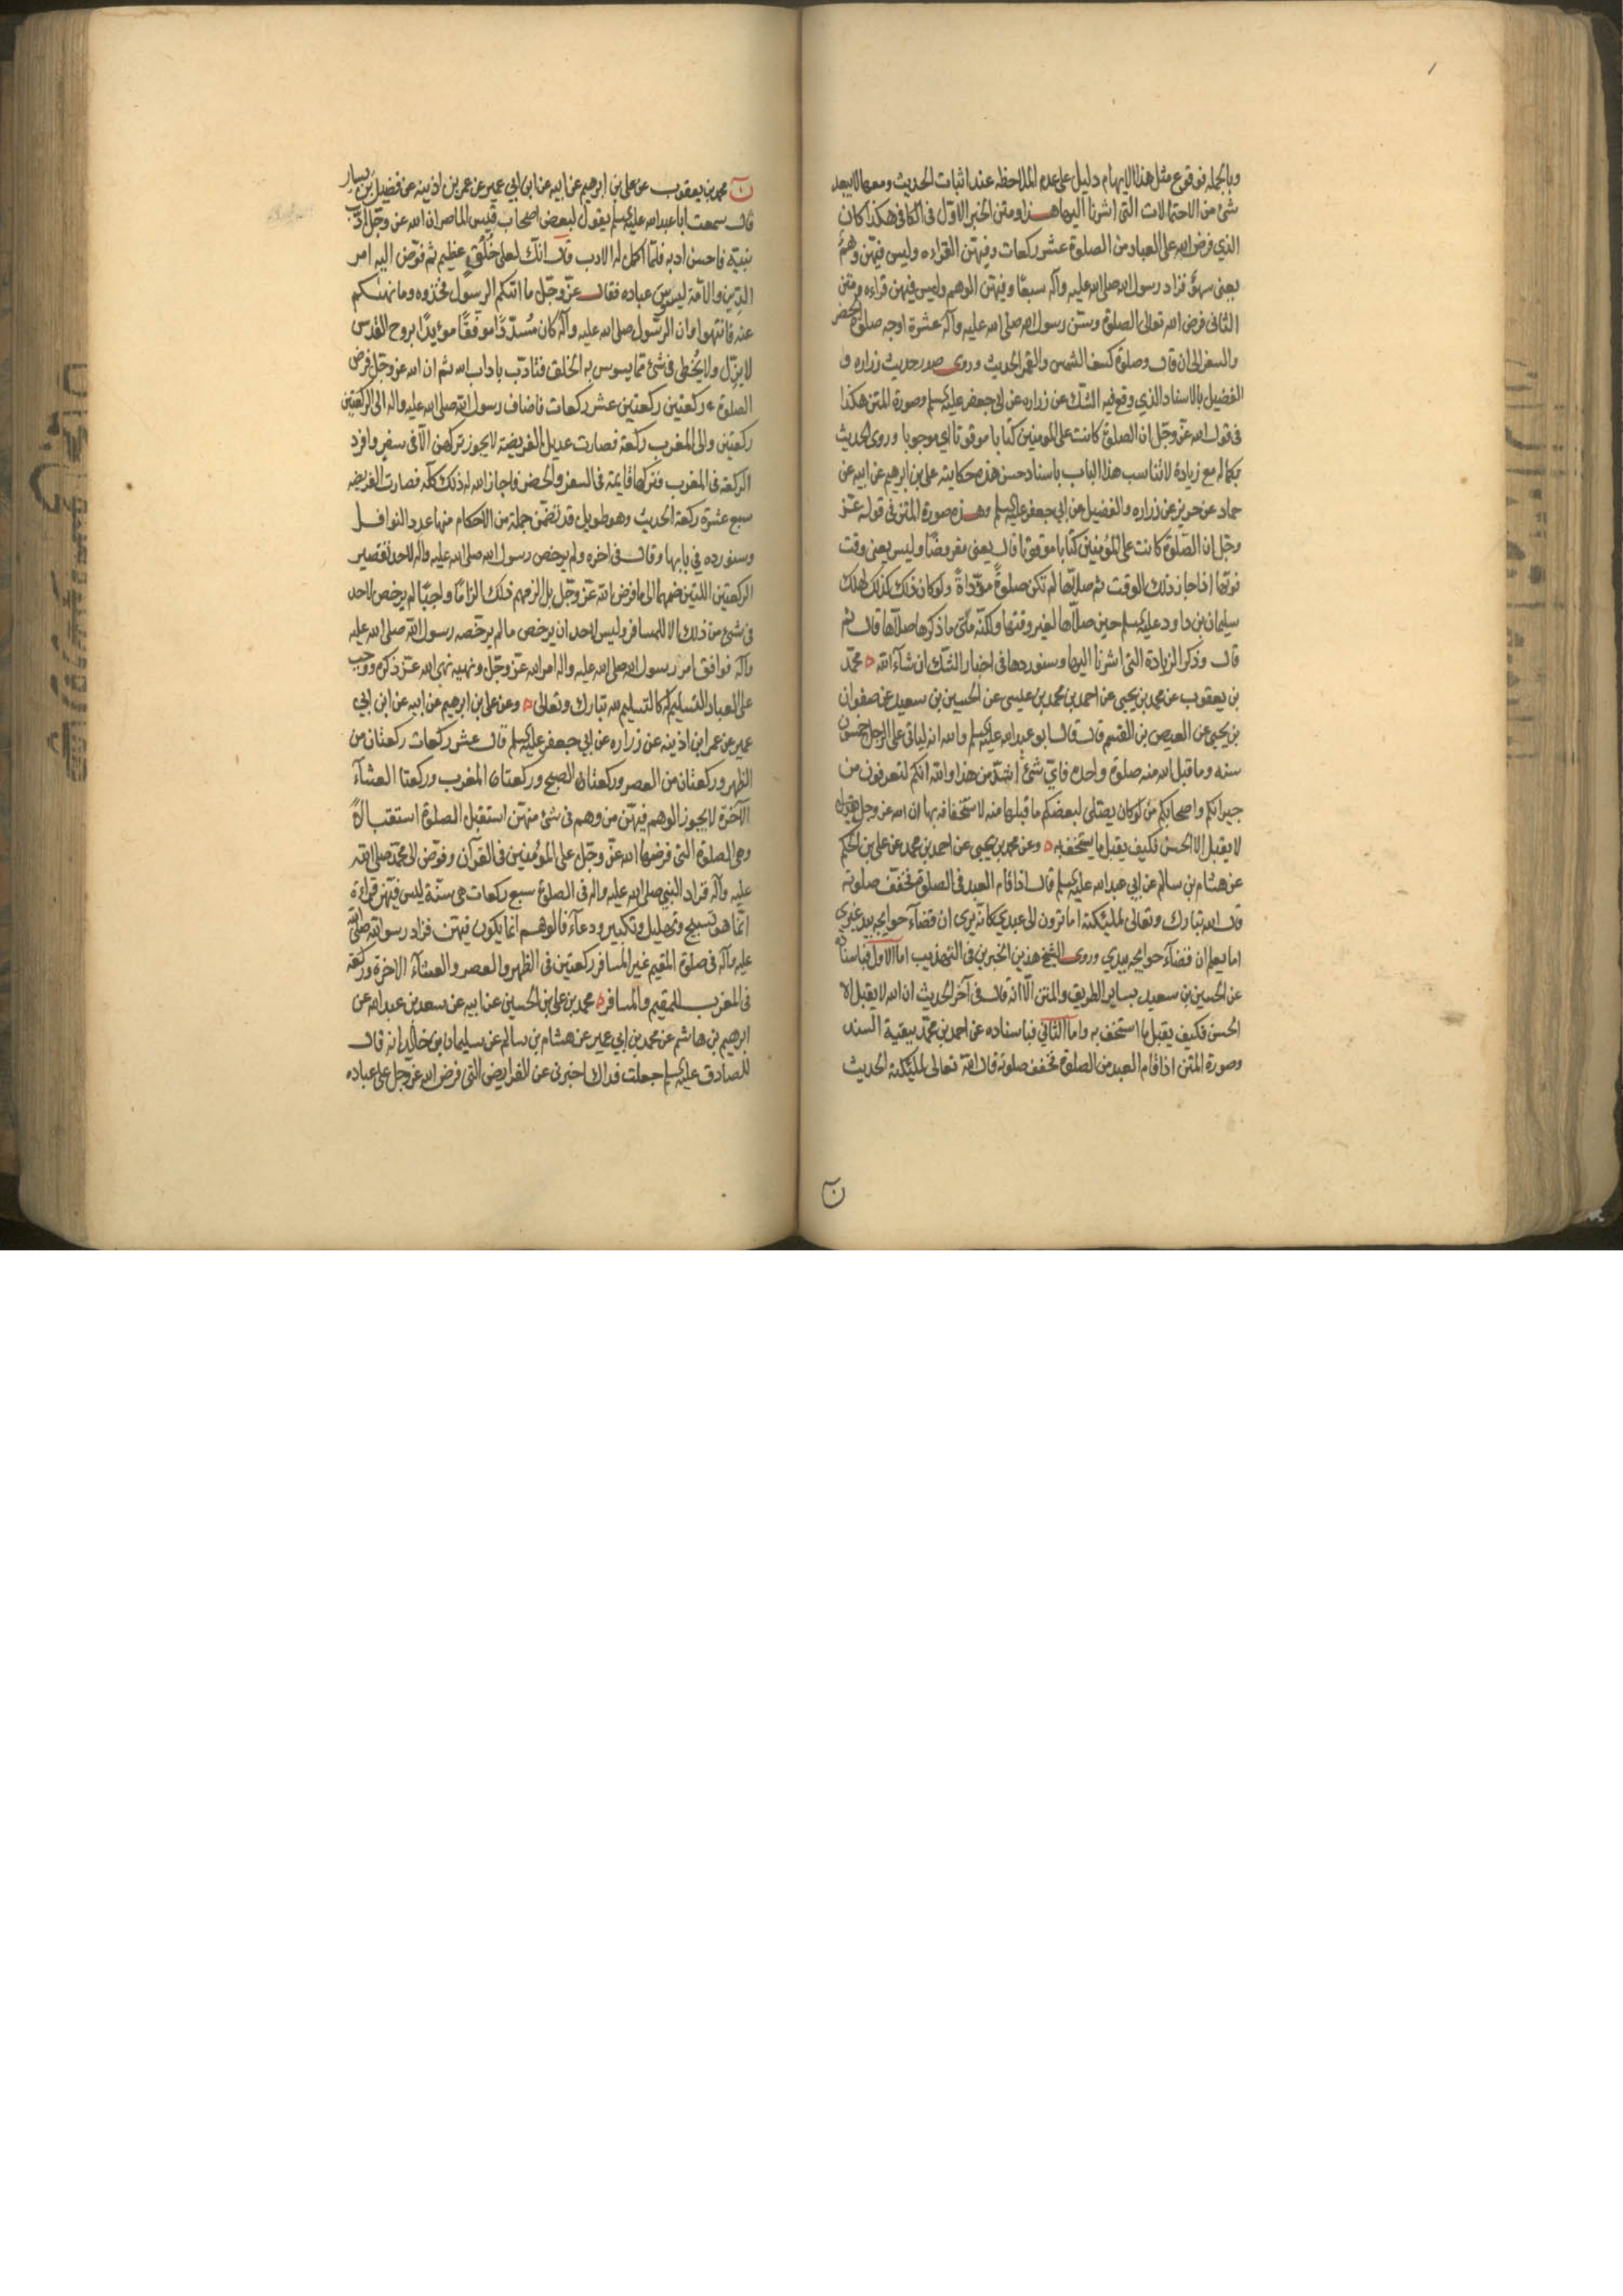 وبالجمله فوقوع مثل هذا الايهام دليل على عدم الملاحظه عند اثبات الحديث ومعها لا يبعد
شئ من الاحتمالات التى اشرنا اليها هذا ومتن الخبر الاول فى الكافى هكذا كان
الذي فرض الله على العباد من الصلوة عشر ركعات وفيهن القراءه وليس فيهن وهم
يعنى سهو فزاد رسول الله صلى الله عليه وآله سبعا وفيهن الوهم وليس فيهن قراءه ومتن
الثانى فرض الله تعالى الصلوة وسن رسول الله صلى الله عليه وآله عشرة اوجه صلوة الحضر
والسفر الى ان قال وصلوة كسف الشمس والقمر الحديث وروى صدر حديث زراره و
الفضيل بالاسناد الذي وقع فيه الشك عن زراره عن ابى جعفر عليه السلم وصورة المتن هكذا
فى قول الله عز وجل ان الصلوة كانت على المومنين كتابا موقوتا اي موجوبا وروى الحديث
بكماله مع زيادة لا تناسب هذا الباب باسناد حسن هذه حكايته على بن ابرهيم عن ابيه عن
حماد عن حريز عن زراره والفضيل عن ابى جعفر عليه السلم وهذه صورة المتن فى قوله عز
وجل ان الصلوة كانت على المؤمنين كتابا موقوتا قال يعنى مفروضا وليس يعنى وقت
فوتها اذا جاز ذلك الوقت ثم صلاها لم تكن صلوة مؤداة ولو كان ذلك كذلك لهلك
سليمان بن داود عليه السلم حين صلاها لغير وقتها ولكنه متى ما ذكرها صلاها قال ثم
قال وذكر الزيادة التى اشرنا اليها وسنوردها فى اخبار الشك ان شآء الله محمد
بن يعقوب عن محمد بن يحيى عن احمد بن محمد بن عيسى عن الحسين بن سعيد عن صفوان
بن يحيى عن العيص بن القسم قال قال ابو عبد الله عليه السلم والله انه لياتى على الرجل خمسون
سنه وما قبل الله منه صلوة واحده فاي شئ اشد من هذا والله انكم لتعرفون من
جيرانكم واصحابكم من لو كان يصلى لبعضكم ما قبلها منه لاستخفافه بها ان الله عز وجل
لا يقبل الا الحسن فكيف يقبل ما يستخف به وعن محمد بن يحيى عن احمد بن محمد عن على بن الحكم
عن هشام بن سالم عن ابي عبد الله عليه السلم قال اذا قام العبد فى الصلوة فخفف صلوته
قال الله تبارك وتعالى لملئكته اما ترون الى عبدي كانه يرى ان قضآء حوايجه بيد غيري
اما يعلم ان قضآء حوايجه بيدي وروى الشيخ هذين الخبرين فى التهذيب اما الاول فباسناده
عن الحسين بن سعيد بساير الطريق والمتن الا انه قال فى آخر الحديث ان الله لا يقبل الا
الحسن فكيف يقبل ما استخف به واما الثاني فباسناده عن احمد بن محمد ببقية السند
وصورة المتن اذا قام العبد من الصلوة فخفف صلوته قال الله تعالى لملئكته الحديث
ن
ن محمد بن يعقوب عن على بن ابرهيم عن ابيه عن ابن ابي عمير عن عمر بن اذينه عن فضيل بن يسار
قال سمعت ابا عبد الله عليه السلم يقول لبعض اصحاب قيس الماصر ان الله عز وجل ادب
نبيه فاحسن ادبه فلما اكمل له الادب قال انك لعلى خلق عظيم ثم فوض اليه امر
الدين والامة ليسوس عباده فقال عز وجل ما اتكم الرسول فخذوه وما نهيكم
عنه فانتهوا وان الرسول صلى الله عليه وآله كان مسددا موفقا مويدا بروح القدس
لا يزل ولا يخطى فى شئ مما يسوس به الخلق فتادب باداب الله ثم ان الله عز وجل فرض
الصلوة ركعتين ركعتين عشر ركعات فاضاف رسول الله صلى الله عليه واله الى الركعتين
ركعتين والى المغرب ركعة فصارت عديل الفريضة لا يجوز تركهن الا فى سفر وافرد
الركعة فى المغرب فتركها قايمة فى السفر والحضر فاجاز الله له ذلك كله فصارت الفريضه
سبع عشرة ركعة الحديث وهو طويل قد تضمن جملة من الاحكام منها عدد النوافل
وسنورده في بابها وقال فى اخره ولم يرخص رسول الله صلى الله عليه واله لاحد تقصير
الركعتين اللتين ضمهما الى ما فرض الله عز وجل بل الزمهم ذلك الزاما واجبا لم يرخص لاحد
فى شئ من ذلك الا للمسافر وليس لاحد ان يرخص ما لم يرخصه رسول الله صلى الله عليه
وآله فوافق امر رسول الله صلى الله عليه واله امر الله عز وجل ونهيه نهى الله عز ذكره ووجب
على العباد التسليم له كالتسليم لله تبارك وتعالى وعن على بن ابرهيم عن ابيه عن ابن ابي
عمير عن عمر ابن اذينه عن زراره عن ابي جعفر عليه السلم قال عشر ركعات ركعتان من
الظهر وركعتان من العصر وركعتان الصبح وركعتان المغرب وركعتا العشآء
الآخرة لا يجوز الوهم فيهن من وهم فى شئ منهن استقبل الصلوة استقبالا
وهى الصلوة التى فرضها الله عز وجل على المؤمنين فى القرآن وفوض الى محمد صلى الله
عليه وآله فزاد النبي صلى الله عليه واله فى الصلوة سبع ركعات هى سنة ليس فيهن قراءة
انما هو تسبيح وتهليل وتكبير ودعآء فالوهم انما يكون فيهن فزاد رسول الله صلى الله
عليه وآله فى صلوة المقيم غير المسافر ركعتين فى الظهر والعصر والعشآء الاخرة وركعة
فى المغرب للمقيم والمسافر محمد بن على بن الحسين عن ابيه عن سعد بن عبد الله عن
ابرهيم بن هاشم عن محمد بن ابي عمير عن هشام بن سالم عن سليمان بن خالد انه قال
للصادق عليه السلم جعلت فداك اخبرنى عن الفرايض التى فرض الله عز وجل على عباده